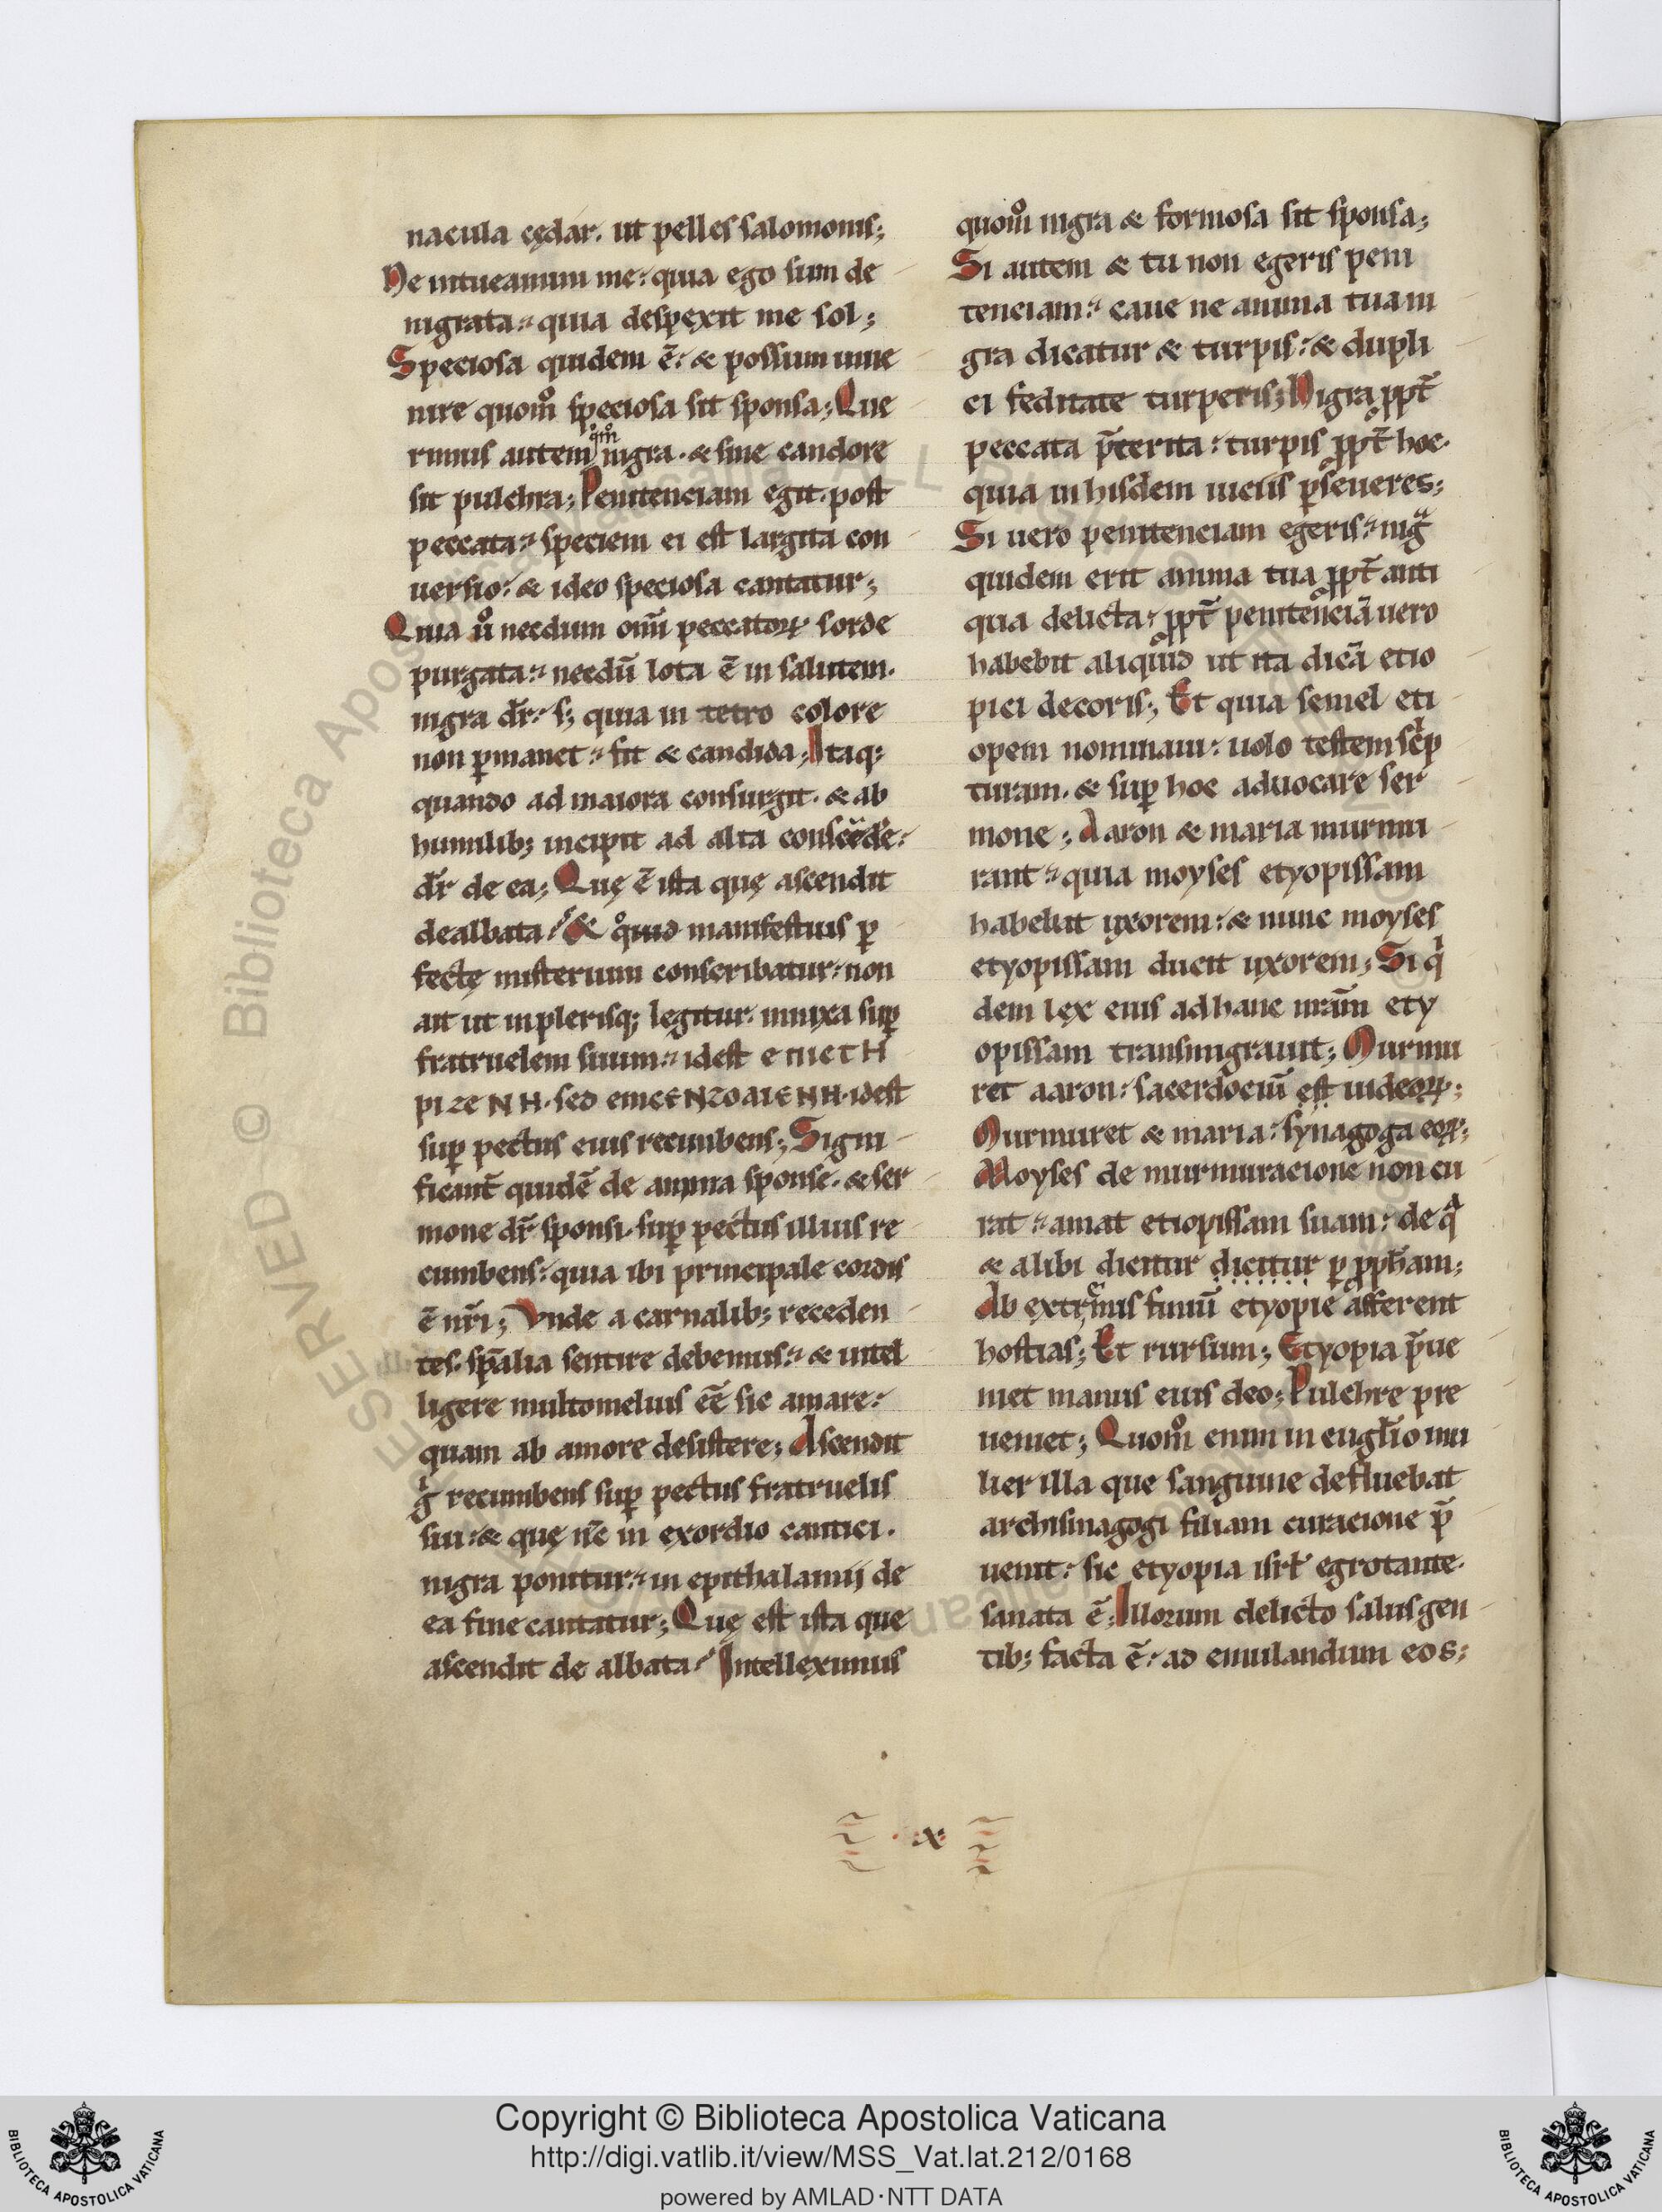 nacula cędar. ut pelles salomonis;
Ne intueamini me: quia ego sum de
nigrata: quia despexit me sol;
Speciosa quidem ē: & possum inue
nire quom̊ speciosa sit sponsa; Que
rimus autem q̊m̊ nigra. & sine candore
sit pulchra; Penitenciam egit. post
peccata: speciem ei est largita con
uersio: & ideo speciosa cantatur;
Quia ů necdum om̄i peccatoꝝ sorde
purgata: necdū lota ē in salutem.
nigra dr̄: s; quia in tetro colore
non ꝑmanet: fit & candida; Itaq:
quando ad maiora consurgit. & ab
humilib; incipit ad alta conscēdere:
dr̄ de ea; Quę ē ista quę ascendit
dealbata? & q̊uid manifestius ꝑ
fectę misterium conscribatur: non
ait ut in plerisq; legitur. innixa suꝑ
fratruelem suum: idest
sed idest
suꝑ pectus eius recumbens; Signi
ficant̄ quidē de anima sponse. & ser
mone dr̄ sponsi. suꝑ pectus illius re
cumbens: quia ibi principale cordis
ē nr̄i; Vnde a carnalib; receden
tes. sp̄alia sentire debemus: & intel
ligere multo melius eē sic amare:
quam ab amore desistere; Ascendit
gͥ recumbens suꝑ pectus fratruelis
sui: & quę nc̄ in exordio cantici.
nigra ponitur: in epithalamij de
ea fine cantatur; Quę est ista que
ascendit de albata? Intelleximus
quom̊ nigra & formosa sit sponsa;
Si autem & tu non egeris peni
tenciam: caue ne anima tua ni
gra dicatur & turpis: & dupli
ci feditate turperis; Nigra ꝓpt̄
peccata p̄terita: turpis ꝓpt̄ hoc.
quia in hisdem uiciis ꝑseueres;
Si uero penitenciam egeris: nigͣ
quidem erit anima tua ꝓpt̄ anti
qua delicta: ꝓpt̄ penitenciā uero
habebit aliquid ut ita dicā etio
pici decoris; Et quia semel eti
opem nominaui: uolo testem scͥp
turam. & suꝑ hoc aduocare ser
mone; Aaron & maria murmu
rant: quia moyses etyopissam
habebit uxorem: & nunc moyses
etyopissam ducit uxorem; Si qͥ
dem lex eius ad hanc nr̄am ety
opissam transmigrauit; Murmu
ret aaron: sacerdociū est iudeoꝝ;
Murmuret & maria: synagoga eoꝝ;
Moyses de murmuracione non cu
rat: amat etiopissam suam: de qͣ
& alibi dicitur dicitur ꝑ ꝓpham;
Ab extremis finiū etyopie afferent
hostias; Et rursum; Etyopia p̄ue
niet manus eius deo; Pulchre pre
ueniet; Quom̊ enim in eugl̄io mu
lier illa que sanguine defluebat
archisinagogi filiam curacione p̄
uenit: sic etyopia isrł egrotante.
sanata ē; Illorum delicto salus gen
tib; facta ē: ad emulandum eos;
·x·
Copyright © Biblioteca Apostolica Vaticana
http://digi.vatlib.it/view/MSS_Vat.lat.212/0168
powered by AMLAD·NTT DATA
BIBLIOTECA APOSTOLICA VATICANA
BIBLIOTECA APOSTOLICA VATICANA